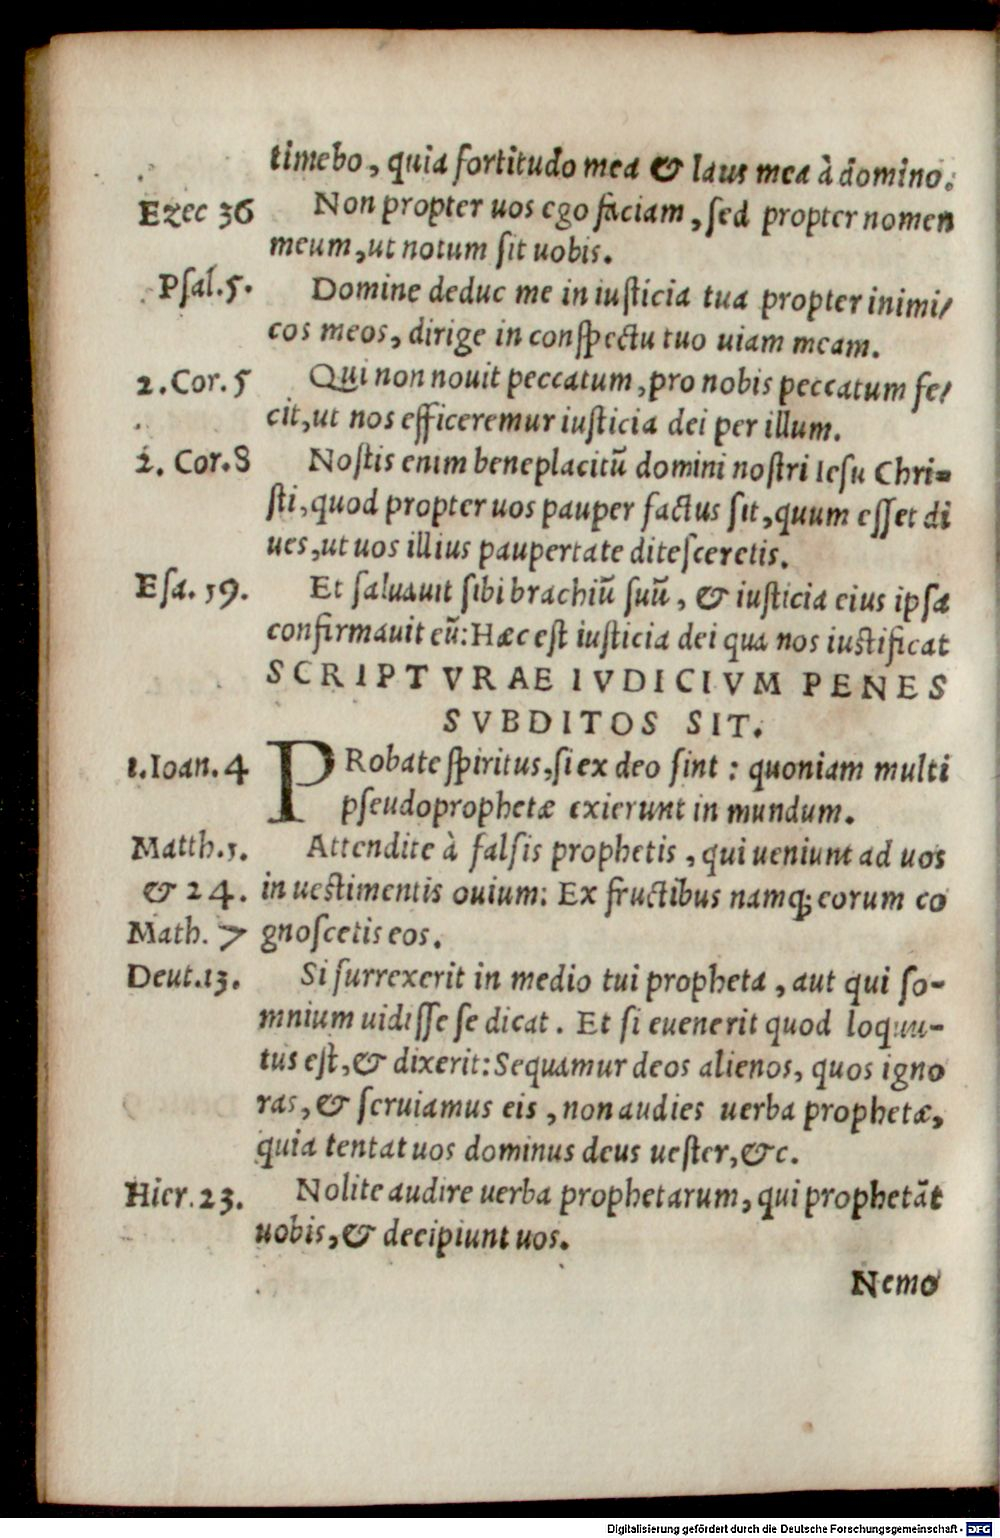 timebo, quia fortitudo mea & laus mea à domino.
Ezec 36 Non propter uos ego faciam, sed propter nomen
meum, ut notum sit uobis.
Psal.5. Domine deduc me in iusticia tua propter inimi/
cos meos, dirige in conspectu tuo uiam meam.
2.Cor.5 Qui non nouit peccatum, pro nobis peccatum fe/
cit, ut nos efficeremur iusticia dei per illum.
2. Cor.8 Nostis enim beneplacitũ domini nostri Iesu Chri=
sti, quod propter uos pauper factus sit, quum esset di
ues, ut uos illius paupertate ditesceretis.
Esa. 59. Et saluauit sibi brachiũ suũ, & iusticia eius ipsa
confirmauit eũ: Hæc est iusticia dei qua nos iustificat
SCRIPTVRAE IVDICIVM PENES
SVBDITOS SIT.
1.Ioan.4 PRobate spiritus, si ex deo sint : quoniam multi
pseudoprophetæ exierunt in mundum.
Matth.5. Attendite à falsis prophetis, qui ueniunt ad uos
& 24. in uestimentis ouium: Ex fructibus namq; eorum co
Math. 7 gnoscetis eos.
Deut.13. Si surrexerit in medio tui propheta, aut qui so-
mnium uidisse se dicat. Et si euenerit quod loquu-
tus est, & dixerit: Sequamur deos alienos, quos igno
ras, & seruiamus eis, non audies uerba prophetæ,
quia tentat uos dominus deus uester, &c.
Hier.23. Nolite audire uerba prophetarum, qui prophetãt
uobis, & decipiunt uos.
Nemo
Digitalisierung gefördert durch die Deutsche Forschungsgemeinschaft - DFG